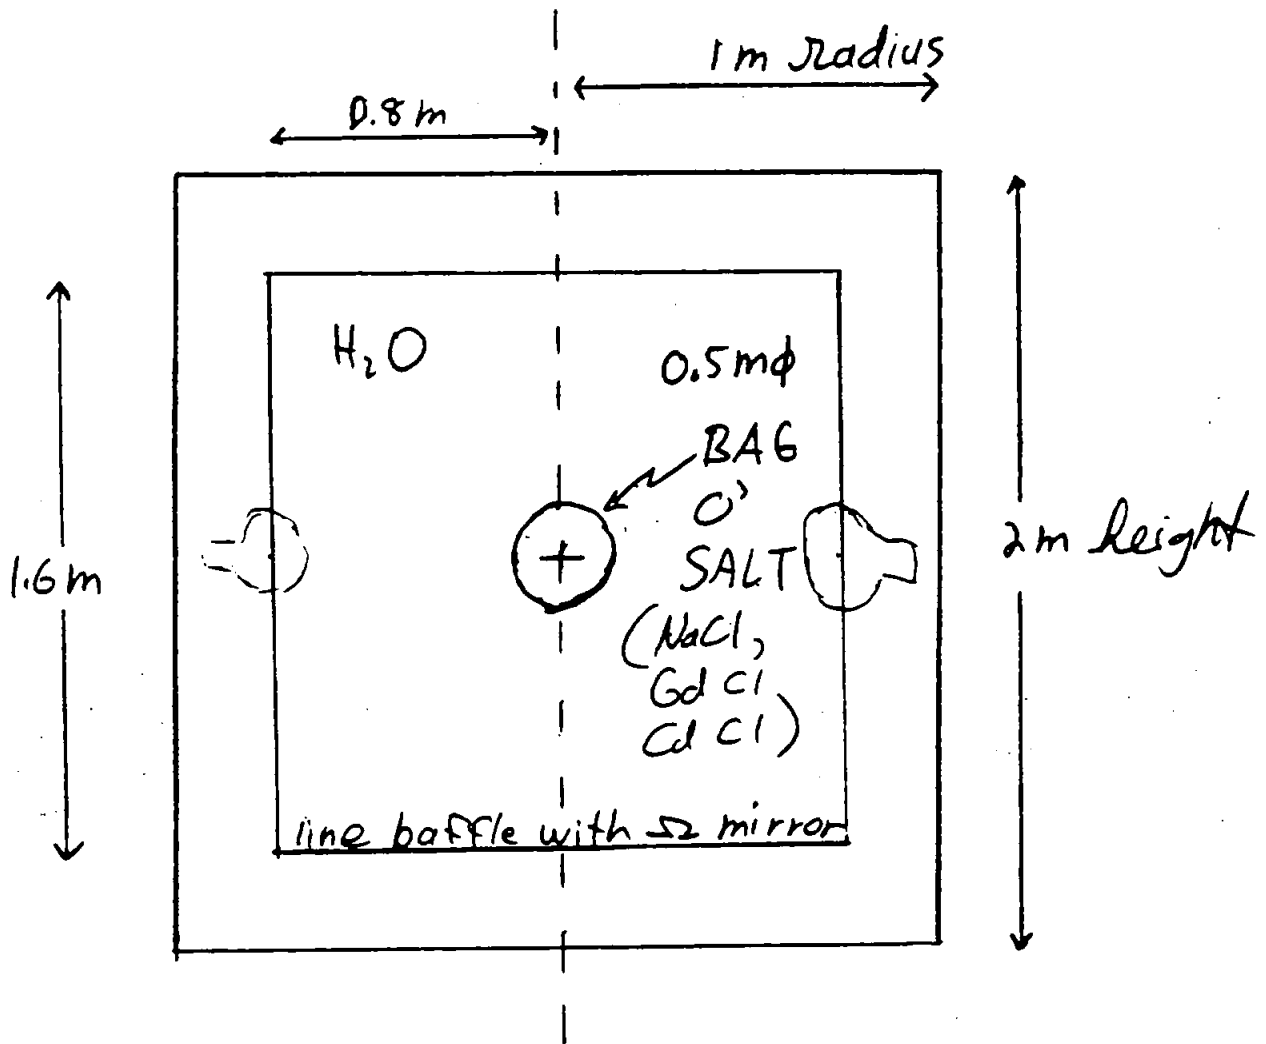 1 m radius
0.8 m
H₂O
0.5 mϕ
BAG
O'
SALT
(NaCl,
Gd Cl
Cd Cl)
1.6 m
2 m height
line baffle with Ω mirror